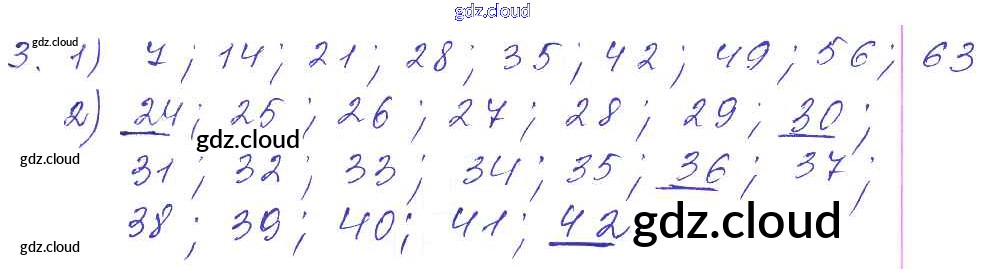 gdz.cloud
3. gdz.cloud 1) 7; 14; 21; 28; 35; 42; 49; 56; 63
2) 24; 25; 26; 27; 28; 29; 30;
gdz.cloud
gdz.cloud 31; 32; 33; 34; 35; 36; 37;
38; 39; 40; 41; 42 gdz.cloud
gdz.cloud